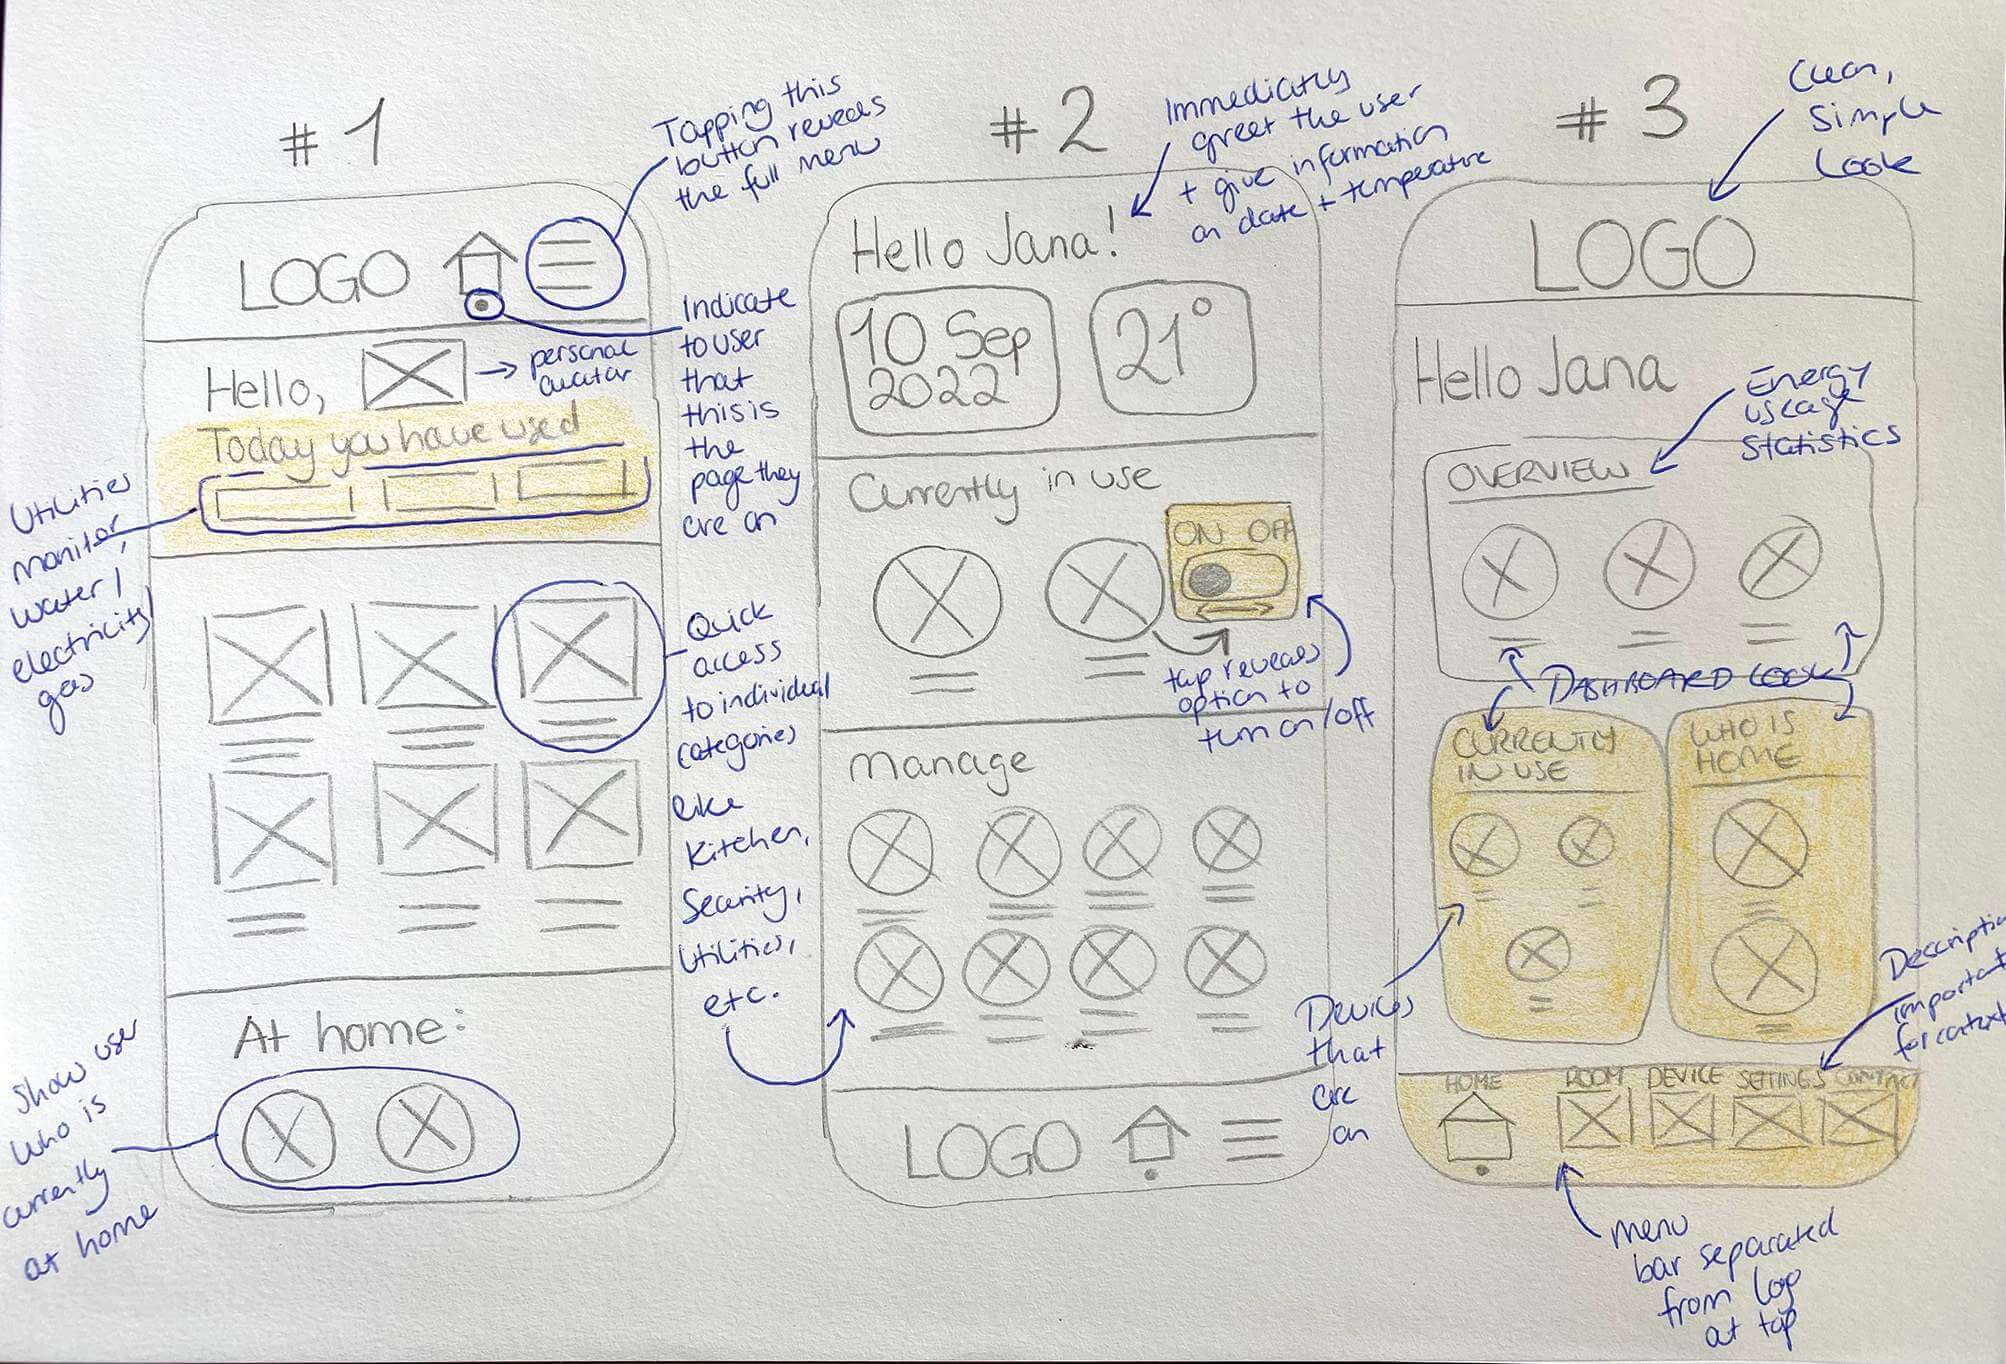 # 1
Tapping this
button reveals
the full menu
LOGO
Indicate
to user
that
this is
the
page they
are on
Hello,
personal
avatar
Today you have used
Utilities
monitor,
water/
electricity/
gas
Quick
access
to individual
categories
like
Kitchen,
Security,
Utilities,
etc.
At home:
Show user
who is
currently
at home
# 2
Immediatly
greet the user
+ give information
on date + temperature
Hello Jana!
10 Sep
2022
21°
Currently in use
ON OFF
tap reveals
option to
turn on/off
Manage
LOGO
# 3
Clean,
Simple
Look
LOGO
Hello Jana
Energy
uscage
Statistics
OVERVIEW
DASHBOARD LOOK
CURRENTLY
IN USE
WHO IS
HOME
Devices
that
are
on
Description
important
for context
HOME ROOM DEVICE SETTINGS CONTACT
menu
bar separated
from logo
at top